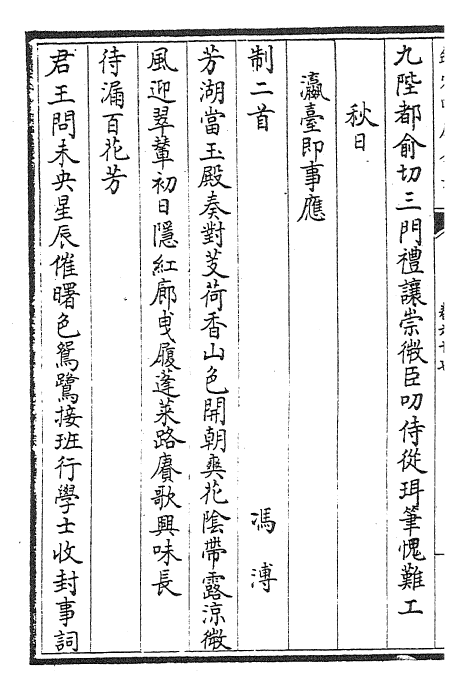 九陛都俞切三門禮讓崇微臣叨侍從珥筆愧難工
秋日
瀛臺即事應
制二首　馮溥
芳湖當玉殿奏對芰荷香山色開朝爽花陰帶露涼微
風迎翠輦初日隱紅廊曳履蓬萊路賡歌興味長
待漏百花芳
君王問未央星辰催曙色鴛鷺接班行學士收封事詞